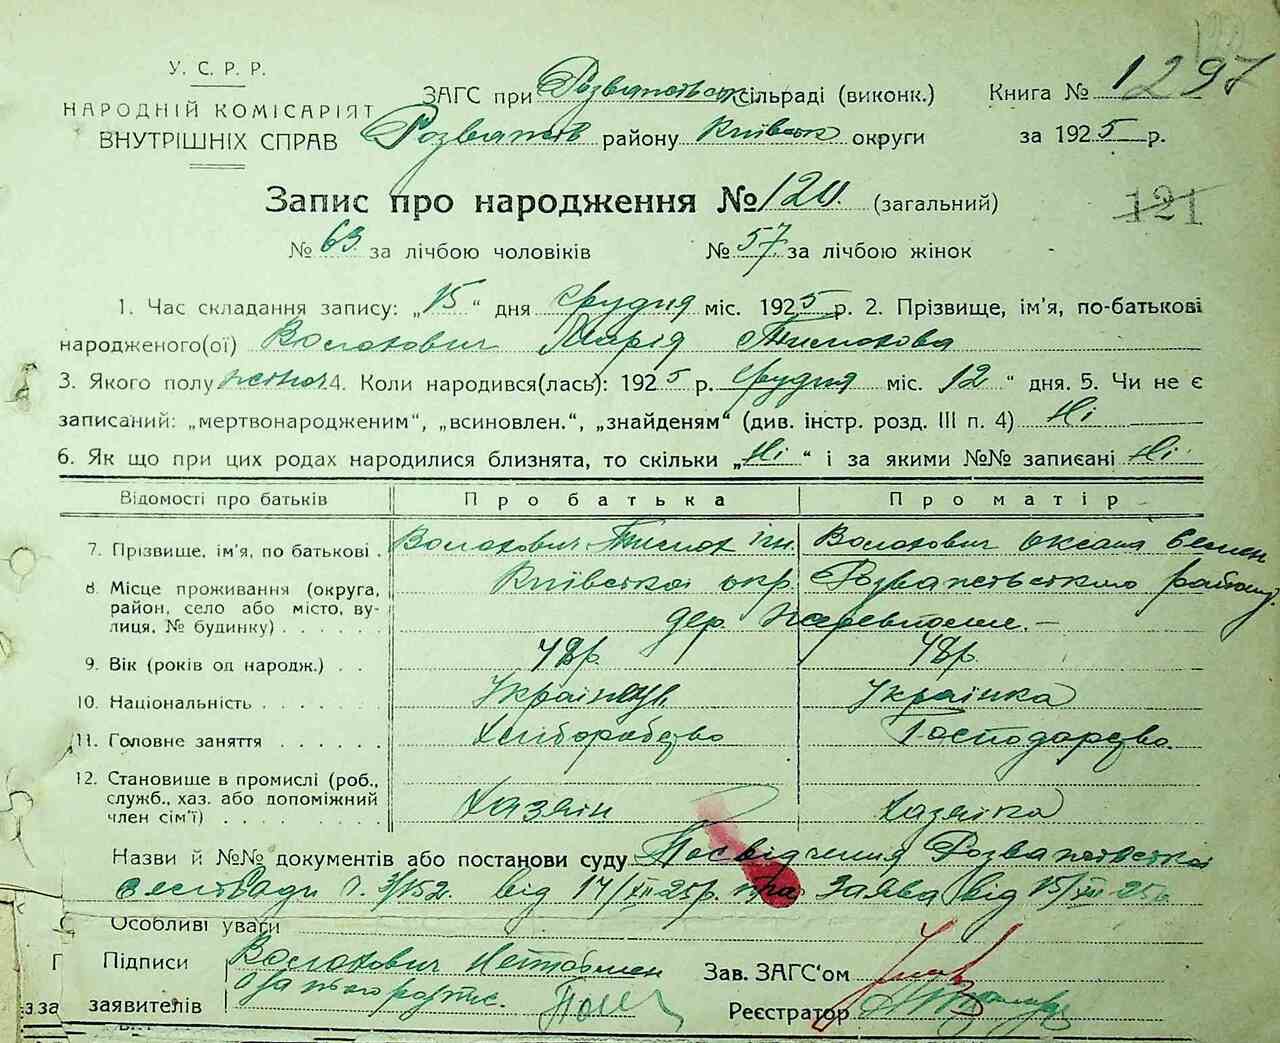 У. С. Р. Р.
НАРОДНІЙ КОМІСАРІЯТ
ВНУТРІШНІХ СПРАВ
ЗАГС при Розважівськ сільраді (виконк.)
Розважів району Київськ округи
Книга № 1297
за 1925 р.
Запис про народження № 120 (загальний)
121
№ 63 за лічбою чоловіків № 57 за лічбою жінок
1. Час складання запису: „15“ дня грудня міс. 1925 р. 2. Прізвище, ім'я, по-батькові
народженого(ої) Волохович Марія Тимохова
3. Якого полу жіноч. 4. Коли народився(лась): 1925 р. грудня міс. 12 “ дня. 5. Чи не є
записаний: „мертвонародженим“, „всиновлен.“, „знайденям“ (див. інстр. розд. III п. 4) Ні
6. Як що при цих родах народилися близнята, то скільки „Ні“ і за якими №№ записані Ні
Відомості про батьків Про батька Про матір
7. Прізвище, ім'я, по батькові. Волохович Тимох Ігн. Волохович Оксана Семен
8. Місце проживання (округа, Київська окр. Розважівського району
район, село або місто, ву-
лиця, № будинку) . . . . . дер.
9. Вік (років од народж.) . . 48р. 48р.
10. Національність . . . . . . Українець Українка
11. Головне заняття . . . . . . Хліборобство Господарство.
12. Становище в промислі (роб.,
служб., хаз. або допоміжний
член сім'ї) . . . . . Хазяїн Хазяйка
Назви й №№ документів або постанови суду Посвідчення Розважівської
сельради № 3/152 від 14/XII-25р. та Заява від 15/XII-25р.
Особливі уваги
Підписи Волохович Неписьмен
заявителів за нього розпис.
Зав. ЗАГС'ом
Реєстратор